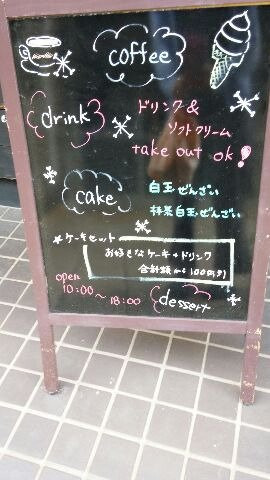 coffee
drink
ドリンク&
ソフトクリーム
take out ok!
cake
白玉ぜんざい
抹茶白玉ぜんざい
★ケーキセット
お好きなケーキ+ドリンク
合計額から100円引
open
10:00~18:00
dessert